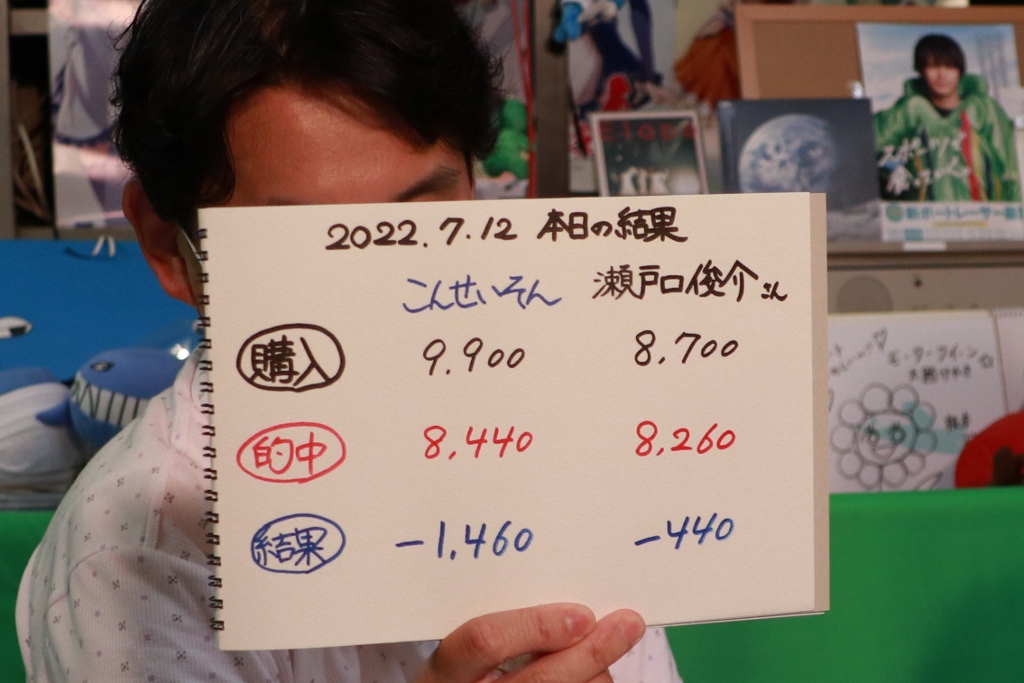 2022.7.12 本日の結果
こんせいそん 瀬戸口俊介さん
購入 9.900 8.700
的中 8,440 8,260
結果 -1,460 -440